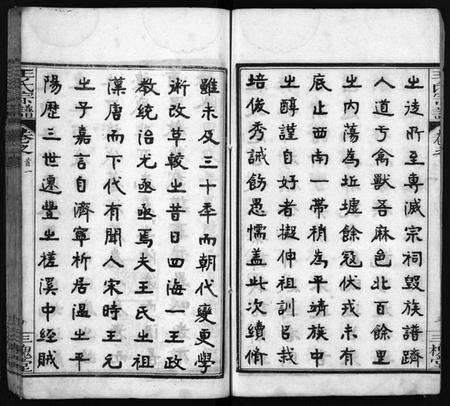 王氏宗譜
之徒所至專滅宗祠毀族譜躋
人道亏禽獸吾麻色北百餘里
之内蕩為坵墟餘寇伏戎未有
底止西南一帶稍為平靖族中
之醇謹自好者擬伸祖訓㠯栽
培俊秀誡飭愚懦蓋此次續脩
雖未及三十年而朝代變更學
術改革較之昔日四海一王政
教統治尤亟亟焉夫王氏之祖
漢唐而下代有聞人宋時王元
之子嘉言自濟寧析居溫之平
陽歷三世遷豐之槎溪中經賊
王氏宗譜 卷之首 一 三槐堂